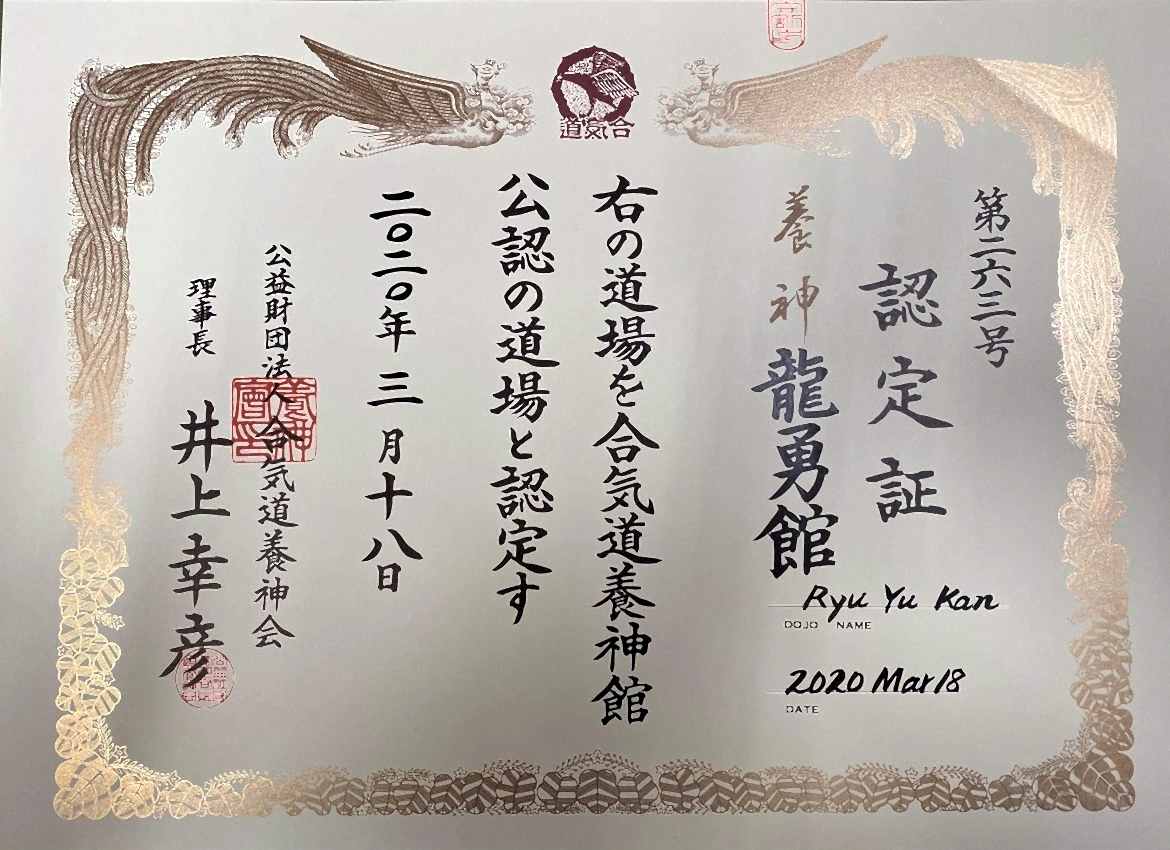 合気道
第二六三号
認定証
養神
龍勇館
Ryu Yu Kan
DOJO NAME
2020 Mar 18
DATE
右の道場を合気道養神館
公認の道場と認定す
二〇二〇年三月十八日
公益財団法人合気道養神会
理事長
井上幸彦